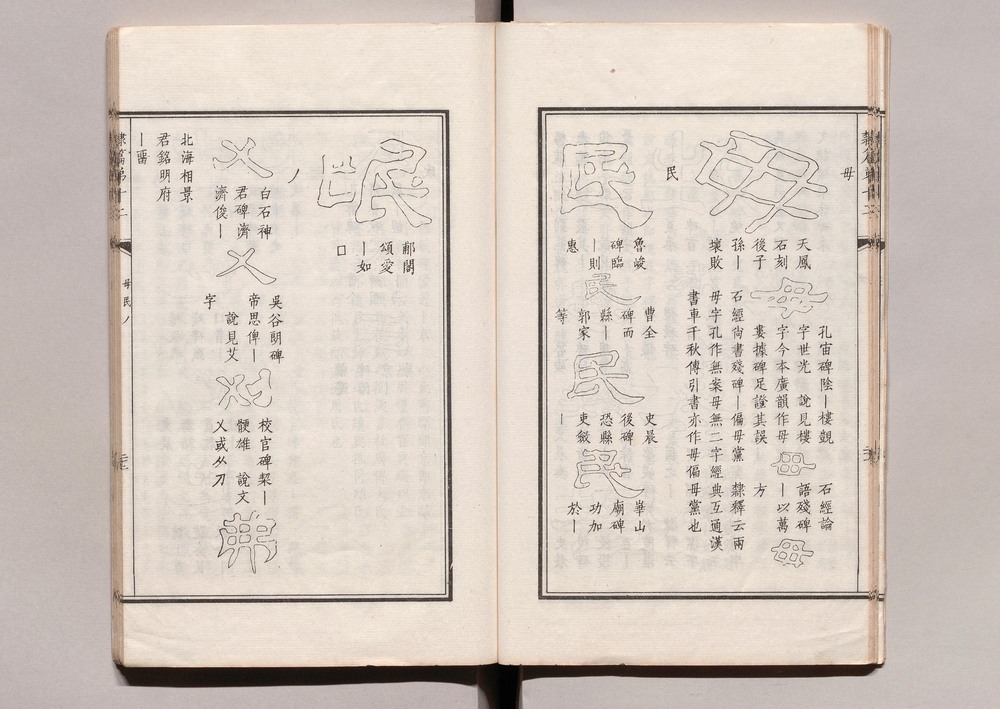 毋
毋
天鳳
石刻
後子
孫｜
壞敗
毋
孔宙碑陰｜樓觀
字世光　說見樓
字今本廣韻作毋
婁據碑足證其誤
毋
石經論
語殘碑
｜以萬
方
毋
石經尚書殘碑｜偏毋黨　隸釋云兩
毋字孔作無案毋無二字經典互通漢
書車千秋傳引書亦作毋偏毋黨也
民
民
魯峻
碑臨
｜則
惠
民
曹全
碑而
縣｜
郭家
等
民
史晨
後碑
恐縣
吏斂
｜
民
華山
廟碑
功加
於｜
郙閣
頌愛
｜如
口
丿
乂
白石神
君碑濟
濟俊｜
乂
吳谷朗碑
帝思俾｜
說見艾
字
刈
校官碑䂮｜
骾雄　說文
乂或从刀
弗
北海相景
君銘明府
｜
毋民丿